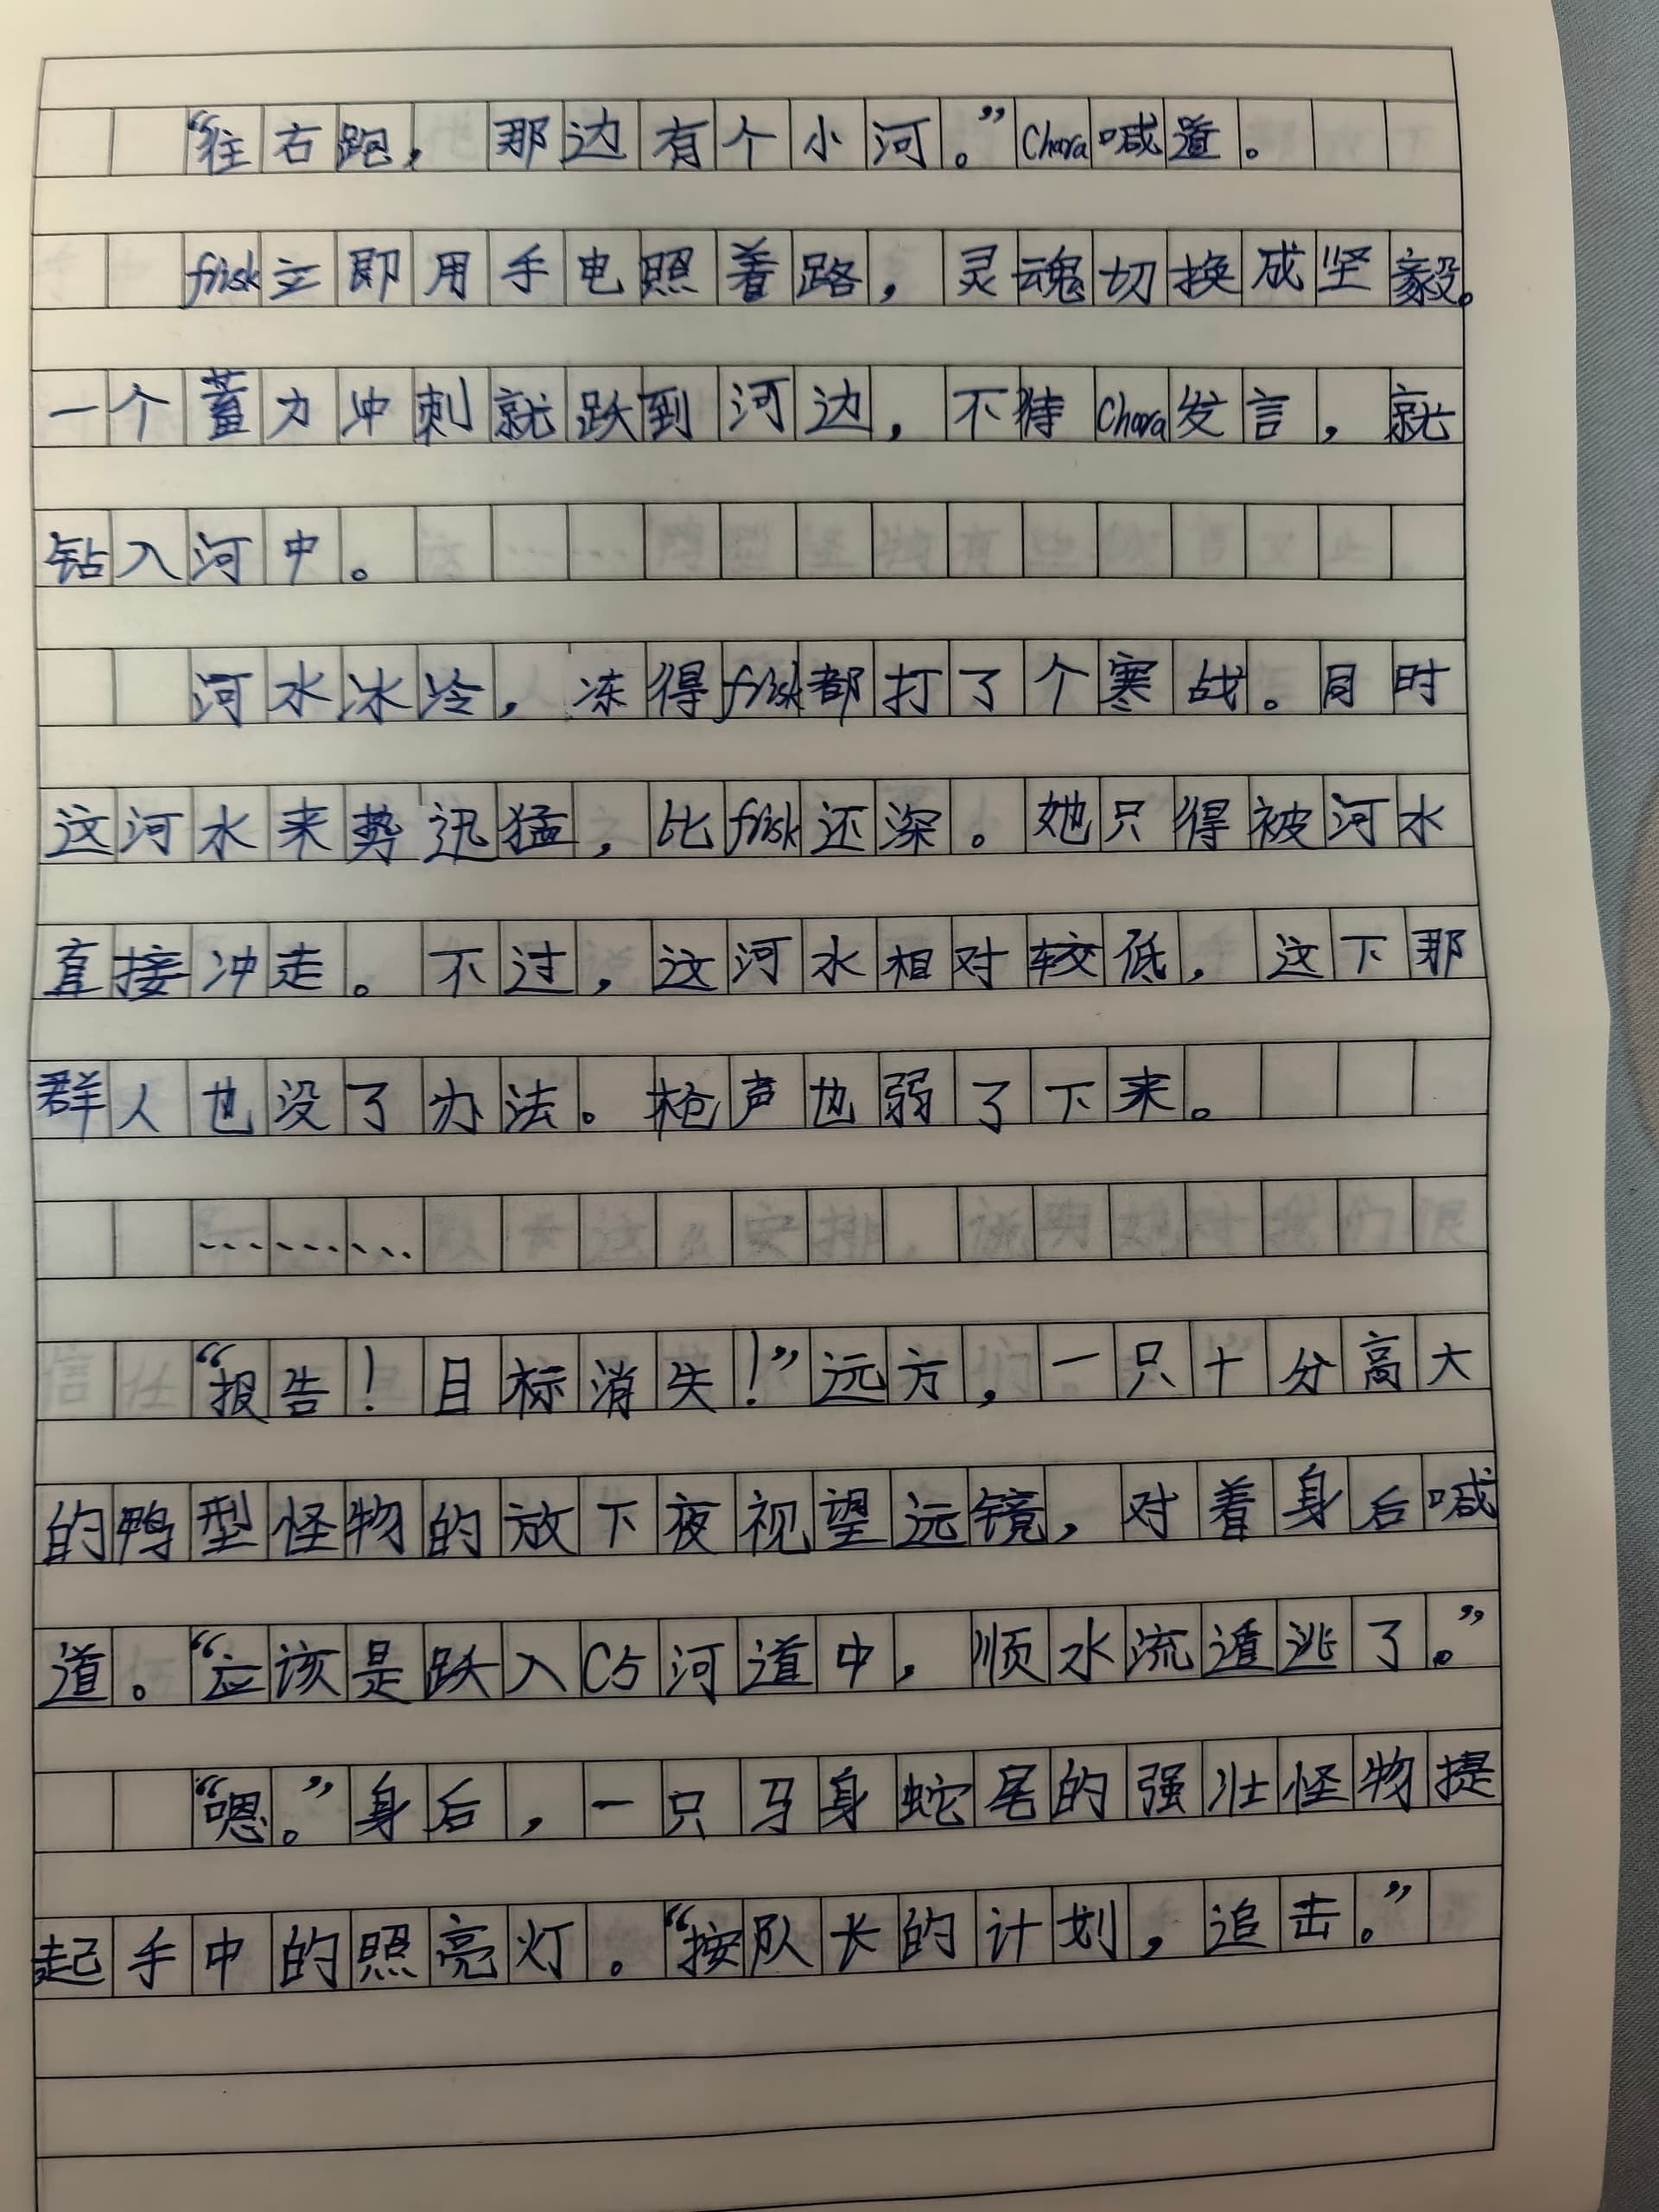 “往右跑，那边有个小河。”Chara喊道。
frisk立即用手电照着路，灵魂切换成坚毅。
一个蓄力冲刺就跃到河边，不待Chara发言，就
钻入河中。
河水冰冷，冻得frisk都打了个寒战。同时
这河水来势迅猛，比frisk还深。她只得被河水
直接冲走。不过，这河水相对较低，这下那
群人也没了办法。枪声也弱了下来。
………
“报告！目标消失！”远方，一只十分高大
的鸭型怪物的放下夜视望远镜，对着身后喊
道。“应该是跃入C5河道中，顺水流遁逃了。”
“嗯。”身后，一只马身蛇尾的强壮怪物提
起手中的照亮灯。“按队长的计划，追击。”